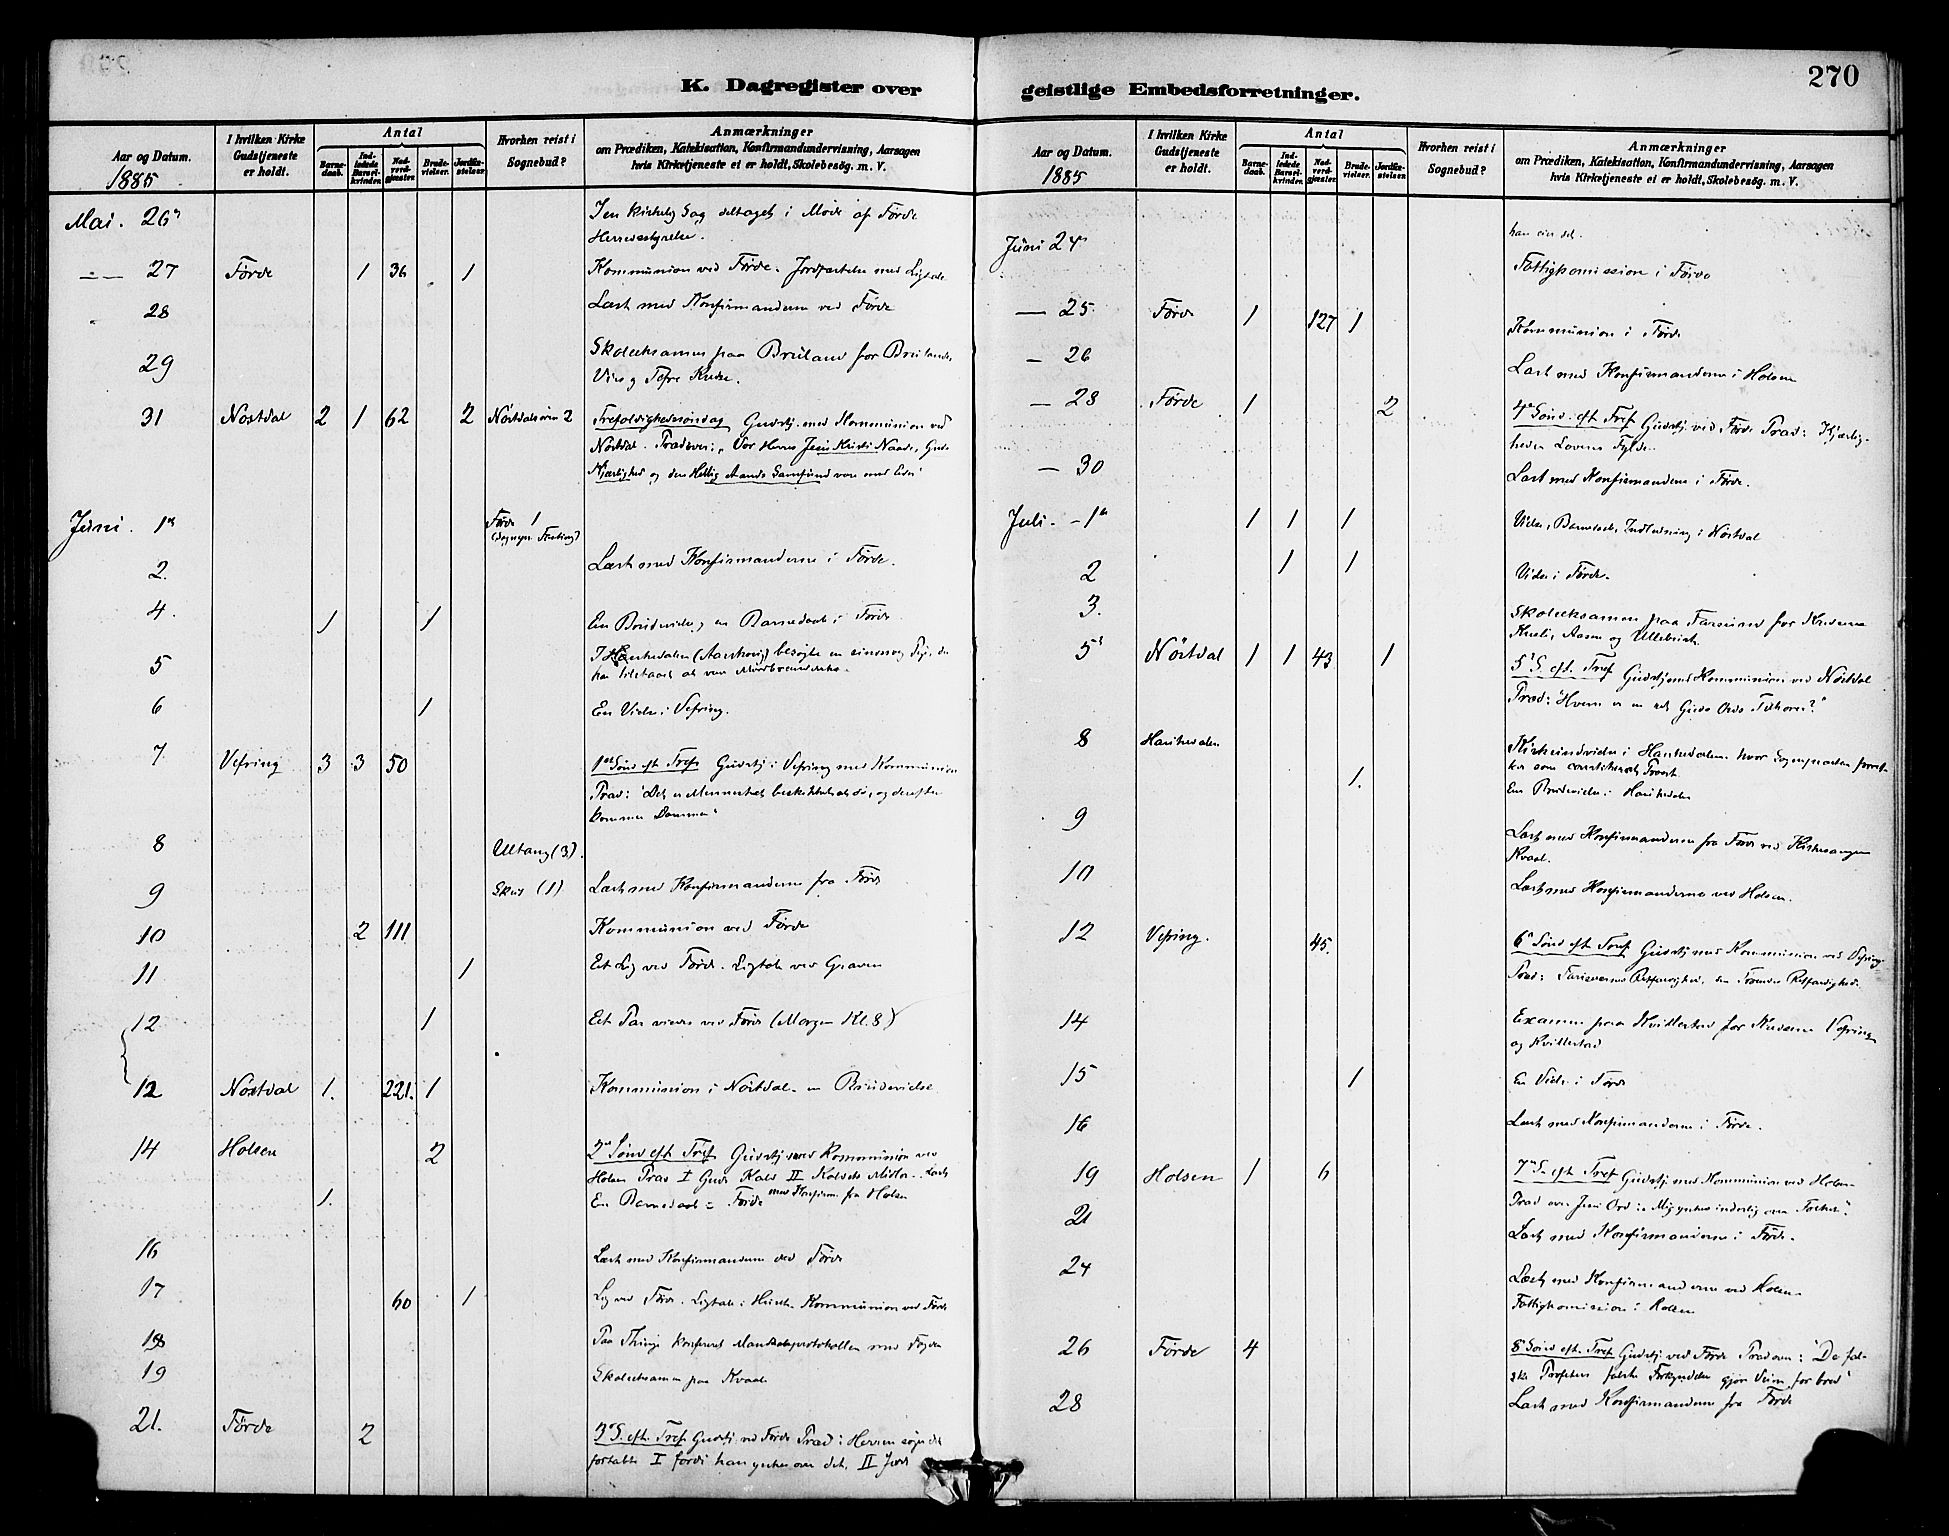 270
K. Dagregister over
geistlige Embedsforretninger.
Aar og Datum.
1885
I hvilken Kirke Gudstjeneste er holdt.
Antal
Barnedaab.
Indledede Barselkvinder.
Nadverdgjæster.
Brudevielser.
Jordfæstelser.
Hvorhen reist i Sognebud?
Anmærkninger
om Prædiken, Katekisation, Konfirmandundervisning, Aarsagen
hvis Kirketjeneste ei er holdt, Skolebesøg. m. V.
Mai. 26 I en kirkelig Sag deltaget i Møde af Førde
Herredsstyrelse.
— 27 Førde 1 36 1 Kommunion ved Førde. Jordfæstelse med Ligtale
28 Læst med Konfirmanderne ved Førde
29 Skoleeksamen paa Bruland for Brulands,
Vie og Tefre Kredse.
31 Nøstdal 2 1 62 2 Nøstdalsøren 2 Trefoldighedssøndag Gudstj. med Kommunion ved
Nøstdal. Præd over: "Vor Herres Jesu Kristi Naade, Guds
Kjærlighed og den Hellig Aands Samfund være med Eder"
Juni. 1 Førde 1
2. Læst med Konfirmanderne i Førde.
4. 1 1 En Brudevielse, en Barnedaab i Førde
5 I Haukedalen besøgte en Pige, der
har tilstaaet at være
6 1 En Vielse i Vefring.
7 Vefring 3 3 50 1 Sønd eft Tref Gudstj i Vefring med Kommunion
Præd: "Det er Mennesket beskikket at dø, og derefter
kommer Dommen"
8 Ullang (3).
9 (1) Læst med Konfirmanderne fra Førde
10 2 111 Kommunion ved Førde
11 1 Et Lig ved Førde. Ligtale ved Graven
12 1 Et Par viede ved Førde (Morgen Kl. 8)
12 Nøstdal 1. 221. 1 Kommunion i Nøstdal. en Brudevielse
14 Holsen 2 2 Sønd eft Tref Gudstj med Kommunion ved
Holsen Præd I Guds Kald II Kaldets . Læst
1. En Barnedaab i Førde med Konfirm. fra Holsen
16 Læst med Konfirmanderne ved Førde
17 60 1 Lig ved Førde. Ligtale i Huset. Kommunion ved Førde
18 Paa Thinge konfereret Mandtalsprotokollen med Fogden
19 Skoleeksamen paa Kvaal
21. Førde 2 3 S. eft. Tref Gudstj. ved Førde Præd: Herren søger det
fortabte I fordi han ynkes over det, II fordi
Aar og Datum.
1885
I hvilken Kirke Gudstjeneste er holdt.
Antal
Barnedaab.
Indledede Barselkvinder.
Nadverdgjæster.
Brudevielser.
Jordfæstelser.
Hvorhen reist i Sognebud?
Anmærkninger
om Prædiken, Katekisation, Konfirmandundervisning, Aarsagen
hvis Kirketjeneste ei er holdt, Skolebesøg. m. V.
han eier det.
Juni 24 Fattigkomission i Førde
— 25. Førde 1 127 1 Kommunion i Førde
— 26 Læst med Konfirmanderne i Holsen
— 28 Førde 1 2 4 Sønd. eft. Tref Gudstj. ved Førde Præd: Kjærlig-
heden Lovens Fylde.
— 30 Læst med Konfirmanderne i Førde.
Juli. — 1 1 1 1 Vielse, Barnedaab, Indledning i Nøstdal
2 1 1 Vielse i Førde.
3. Skoleeksamen paa Farsund for Kredserne
Kusli, Aasen og
5 Nøstdal 1 1 43 1 5 S. eft. Tref Gudstj med Kommunion ved Nøstdal
Præd: "Hvem er en ret Guds Ords Tilhører?"
8 Haukedalen Kirkeindvielse i Haukedalen hvor Sognepræsten forret-
tede som constitueret Provst.
1. En Brudevielse i Haukedalen
9 Læst med Konfirmanderne fra Førde ved Kirkesanger
Kvaal.
10 Læst med Konfirmanderne ved Holsen.
12 Vefring. 45. 6 Sønd eft Tref Gudstj med Kommunion ved Vefring
Præd: Farisæernes Retfærdighed, den Troendes Retfærdighed.
14 Examen paa Kvillestad for Kredserne Vefring
og Kvillestad
15 1 En Vielse i Førde
16 Læst med Konfirmanderne i Førde.
19 Holsen 1 6 7 S. eft Tref Gudstj med Kommunion ved Holsen
Præd over Jesu Ord: "Mig ynkes inderlig over Folket".
21 Læst med Konfirmanderne i Førde.
24 Læst med Konfirmanderne ved Holsen
Fattigkomission i Holsen
26 Førde 4 8 Sønd eft. Tref Gudstj ved Førde Præd over: "De fal-
ske Profeters falske Forkyndelse gjør Veien for bred"
28 Læst med Konfirmanderne fra Førde